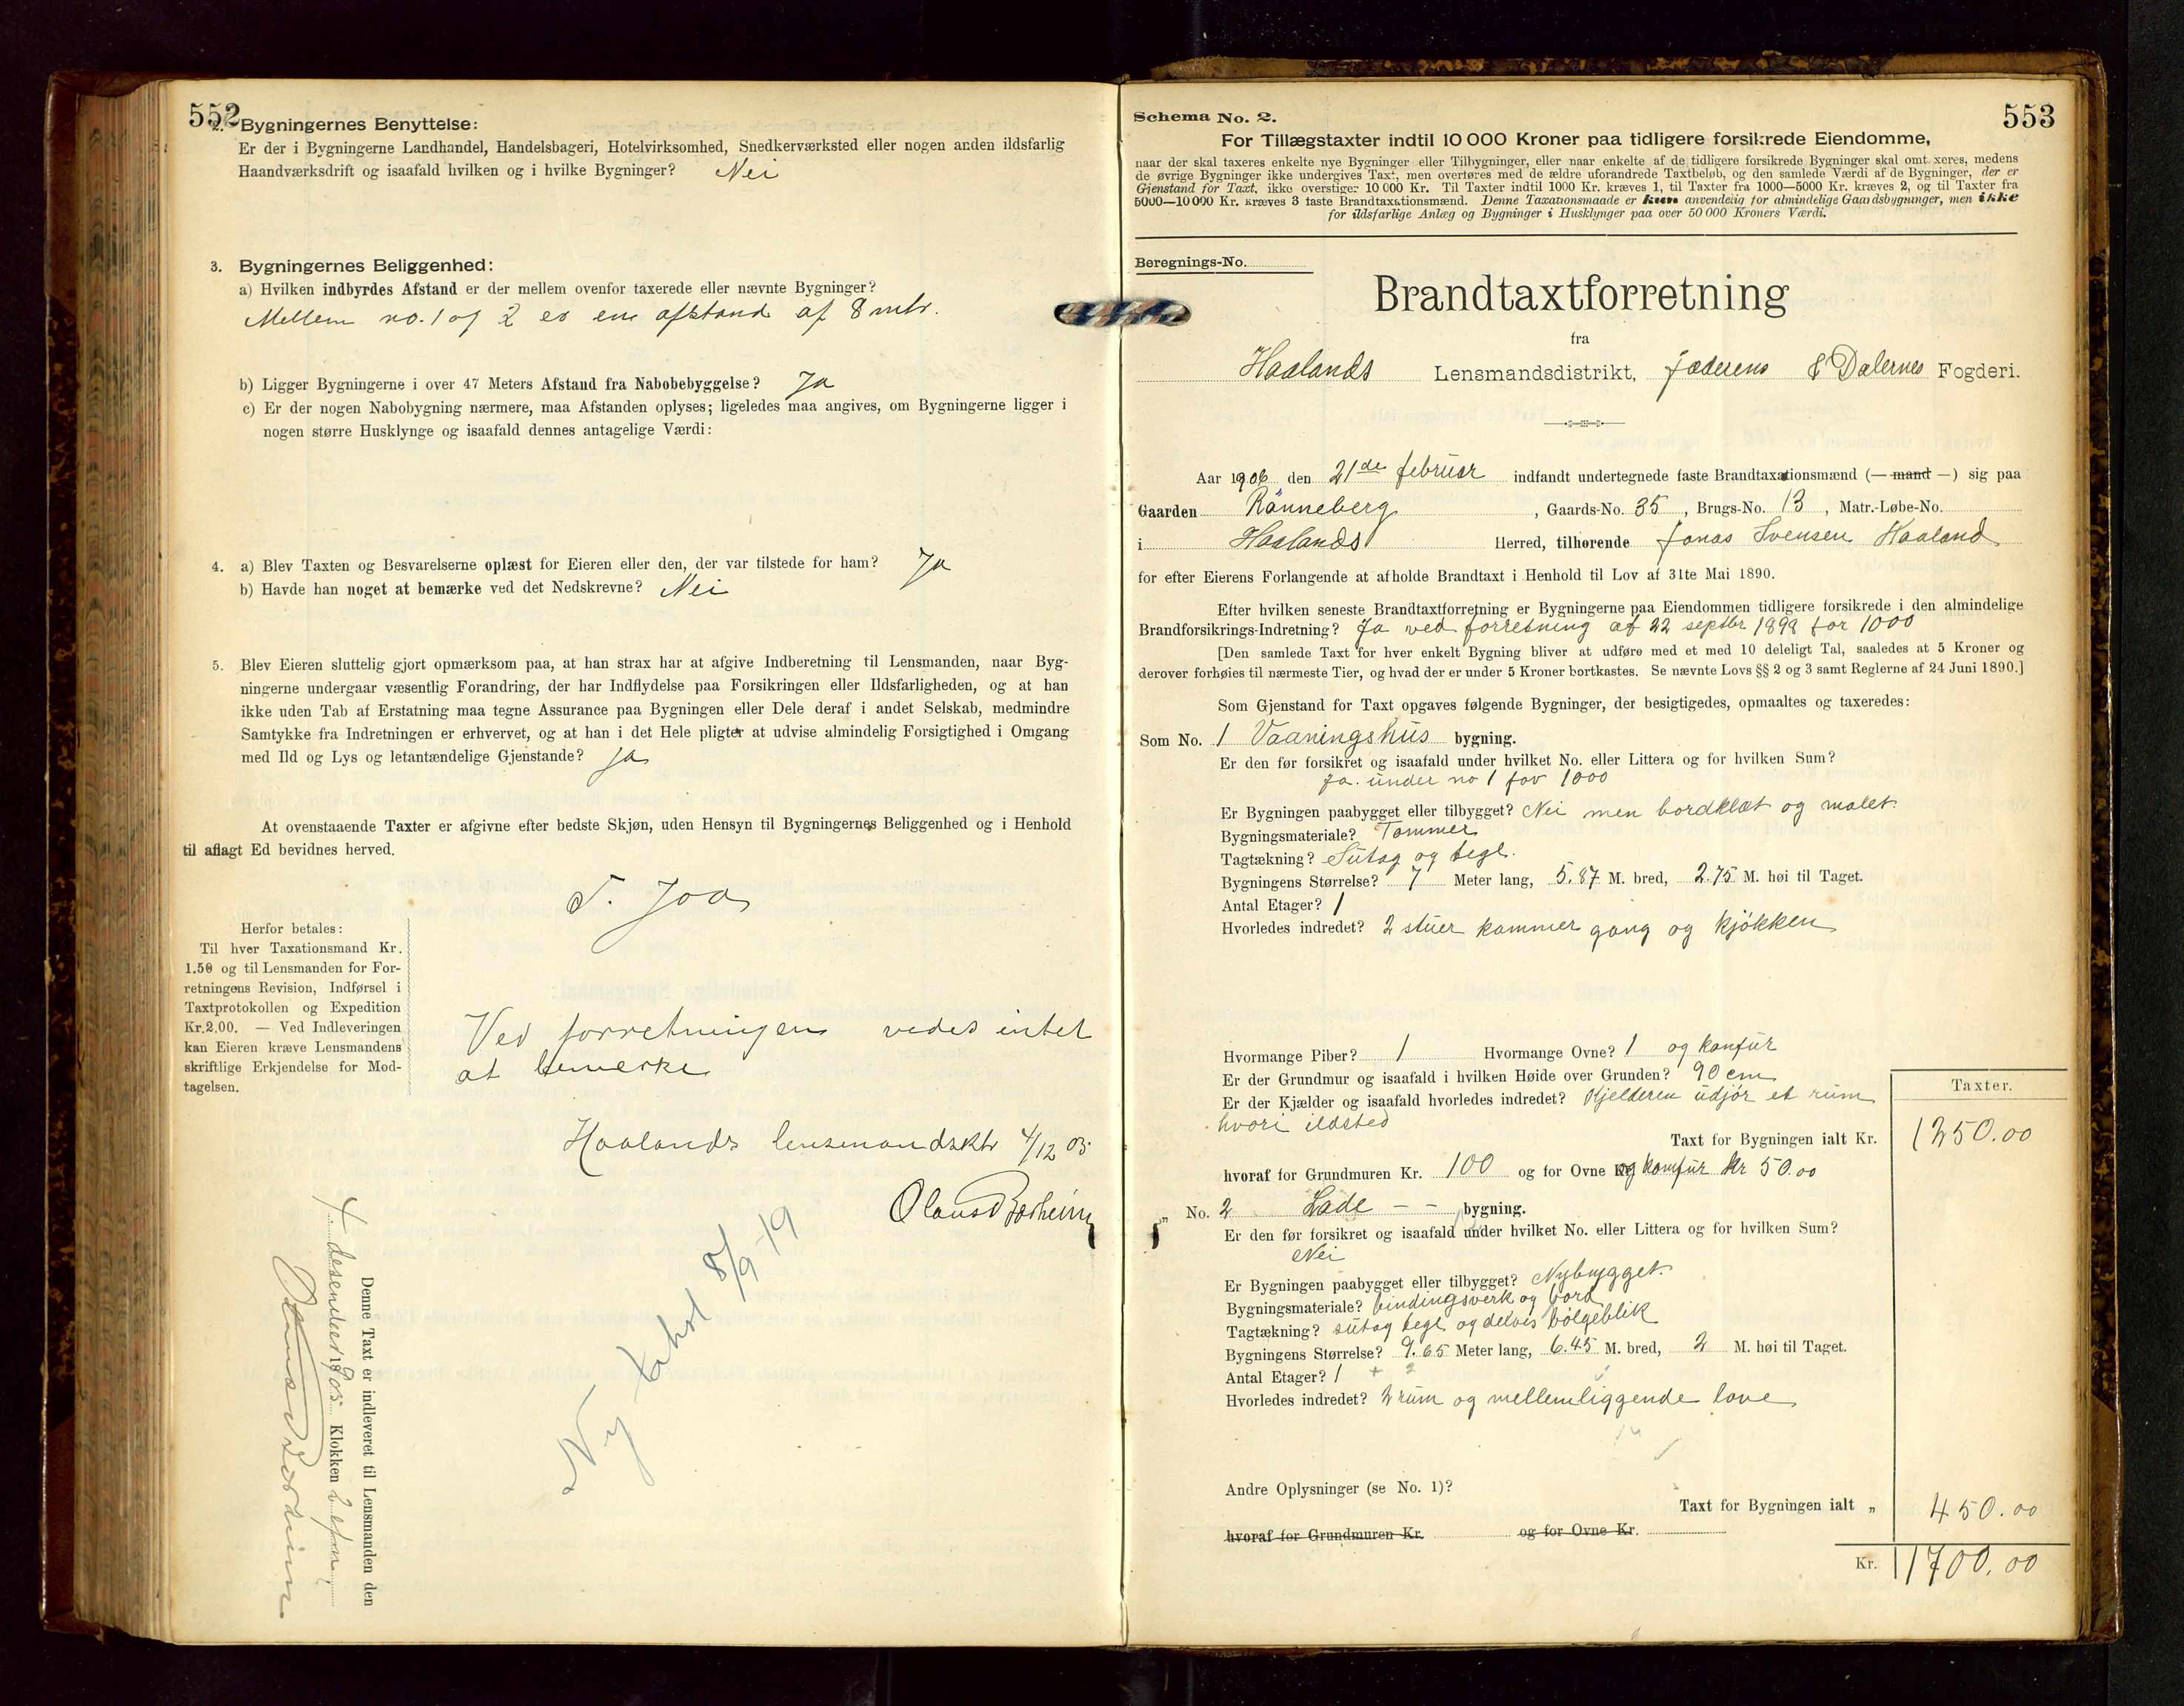 552
2. Bygningernes Benyttelse:
Er der i Bygningerne Landhandel, Handelsbageri, Hotelvirksomhed, Snedkerværksted eller nogen anden ildsfarlig
Haandværksdrift og isaafald hvilken og i hvilke Bygninger? Nei
3. Bygningernes Beliggenhed:
a) Hvilken indbyrdes Afstand er der mellem ovenfor taxerede eller nævnte Bygninger?
Mellem no. 1 og 2 er en afstand af 8 mtr.
b) Ligger Bygningerne i over 47 Meters Afstand fra Nabobebyggelse? Ja
c) Er der nogen Nabobygning nærmere, maa Afstanden oplyses; ligeledes maa angives, om Bygningerne ligger i
nogen større Husklynge og isaafald dennes antagelige Værdi:
4. a) Blev Taxten og Besvarelserne oplæst for Eieren eller den, der var tilstede for ham? Ja
b) Havde han noget at bemærke ved det Nedskrevne? Nei
5. Blev Eieren sluttelig gjort opmærksom paa, at han strax har at afgive Indberetning til Lensmanden, naar Byg-
ningerne undergaar væsentlig Forandring, der har Indflydelse paa Forsikringen eller Ildsfarligheden, og at han
ikke uden Tab af Erstatning maa tegne Assurance paa Bygningen eller Dele deraf i andet Selskab, medmindre
Samtykke fra Indretningen er erhvervet, og at han i det Hele pligter at udvise almindelig Forsigtighed i Omgang
med Ild og Lys og letantændelige Gjenstande? ja
At ovenstaaende Taxter er afgivne efter bedste Skjøn, uden Hensyn til Bygningernes Beliggenhed og i Henhold
til aflagt Ed bevidnes herved.
T. Joa
Herfor betales:
Til hver Taxationsmand Kr.
1.50 og til Lensmanden for For-
retningens Revision, Indførsel i
Taxtprotokollen og Expedition
Kr.2.00. — Ved Indleveringen
kan Eieren kræve Lensmandens
skriftlige Erkjendelse for Mod-
tagelsen.
Ved forretningen vides intet
at bemerke
Haalands lensmandsktr 4/12 05
Olaus Borheim
Denne Taxt er indleveret til Lensmanden den
4 desember 1905 Klokken 2
Olaus Borheim
Ny takst 8/9-19
553
Schema No. 2.
For Tillægstaxter indtil 10 000 Kroner paa tidligere forsikrede Eiendomme,
naar der skal taxeres enkelte nye Bygninger eller Tilbygninger, eller naar enkelte af de tidligere forsikrede Bygninger skal omtaxeres, medens
de øvrige Bygninger ikke undergives Taxt, men overføres med de ældre uforandrede Taxtbeløb, og den samlede Værdi af de Bygninger, der er
Gjenstand for Taxt, ikke overstiger 10 000 Kr. Til Taxter indtil 1000 Kr. kræves 1, til Taxter fra 1000—5000 Kr. kræves 2, og til Taxter fra
5000—10 000 Kr. kræves 3 faste Brandtaxationsmænd. Denne Taxationsmaade er kun anvendelig for almindelige Gaardsbygninger, men ikke
for ildsfarlige Anlæg og Bygninger i Husklynger paa over 50 000 Kroners Værdi.
Beregnings-No.
Brandtaxtforretning
fra
Haalands Lensmandsdistrikt, Jæderens & Dalernes Fogderi.
Aar 1906 den 21de februar indfandt undertegnede faste Brandtaxationsmænd (— mand —) sig paa
Gaarden Rönneberg, Gaards-No. 35, Brugs-No. 13, Matr.-Løbe-No.
i Haalands Herred, tilhørende Jonas Svensen Haaland
for efter Eierens Forlangende at afholde Brandtaxt i Henhold til Lov af 31te Mai 1890.
Efter hvilken seneste Brandtaxtforretning er Bygningerne paa Eiendommen tidligere forsikrede i den almindelige
Brandforsikrings-Indretning? Ja ved forretning af 22 septbr 1898 for 1000
[Den samlede Taxt for hver enkelt Bygning bliver at udføre med et med 10 deleligt Tal, saaledes at 5 Kroner og
derover forhøies til nærmeste Tier, og hvad der er under 5 Kroner bortkastes. Se nævnte Lovs §§ 2 og 3 samt Reglerne af 24 Juni 1890.]
Som Gjenstand for Taxt opgaves følgende Bygninger, der besigtigedes, opmaaltes og taxeredes:
Som No. 1 Vaaningshus bygning.
Er den før forsikret og isaafald under hvilket No. eller Littera og for hvilken Sum?
Ja. under no 1 for 1000
Er Bygningen paabygget eller tilbygget? Nei men bordklæt og malet.
Bygningsmateriale? Tømmer
Tagtækning? Sutag og tegl.
Bygningens Størrelse? 7 Meter lang, 5.87 M. bred, 2.75 M. høi til Taget.
Antal Etager? 1
Hvorledes indredet? 2 stuer kammer gang og kjøkken
Hvormange Piber? 1 Hvormange Ovne? 1 og komfur
Er der Grundmur og isaafald i hvilken Høide over Grunden? 90 cm
Er der Kjælder og isaafald hvorledes indredet? Kjelderen udjör et rum
hvori ildsted
Taxter.
Taxt for Bygningen ialt Kr. 1250.00
hvoraf for Grundmuren Kr. 100 og for Ovne og komfur Kr 50.00
„ No. 2 Lade - - bygning.
Er den før forsikret og isaafald under hvilket No. eller Littera og for hvilken Sum?
Nei
Er Bygningen paabygget eller tilbygget? Nybygget.
Bygningsmateriale? bindingsverk og bord
Tagtækning? sutag tegl og delvis bölgeblik
Bygningens Størrelse? 9.65 Meter lang, 6.45 M. bred, 2 M. høi til Taget.
Antal Etager? 1
Hvorledes indredet? 2 rum og mellemliggende love
Andre Oplysninger (se No. 1)?
Taxt for Bygningen ialt „ 450.00
hvoraf for Grundmuren Kr. og for Ovne Kr.
Kr. 1700.00